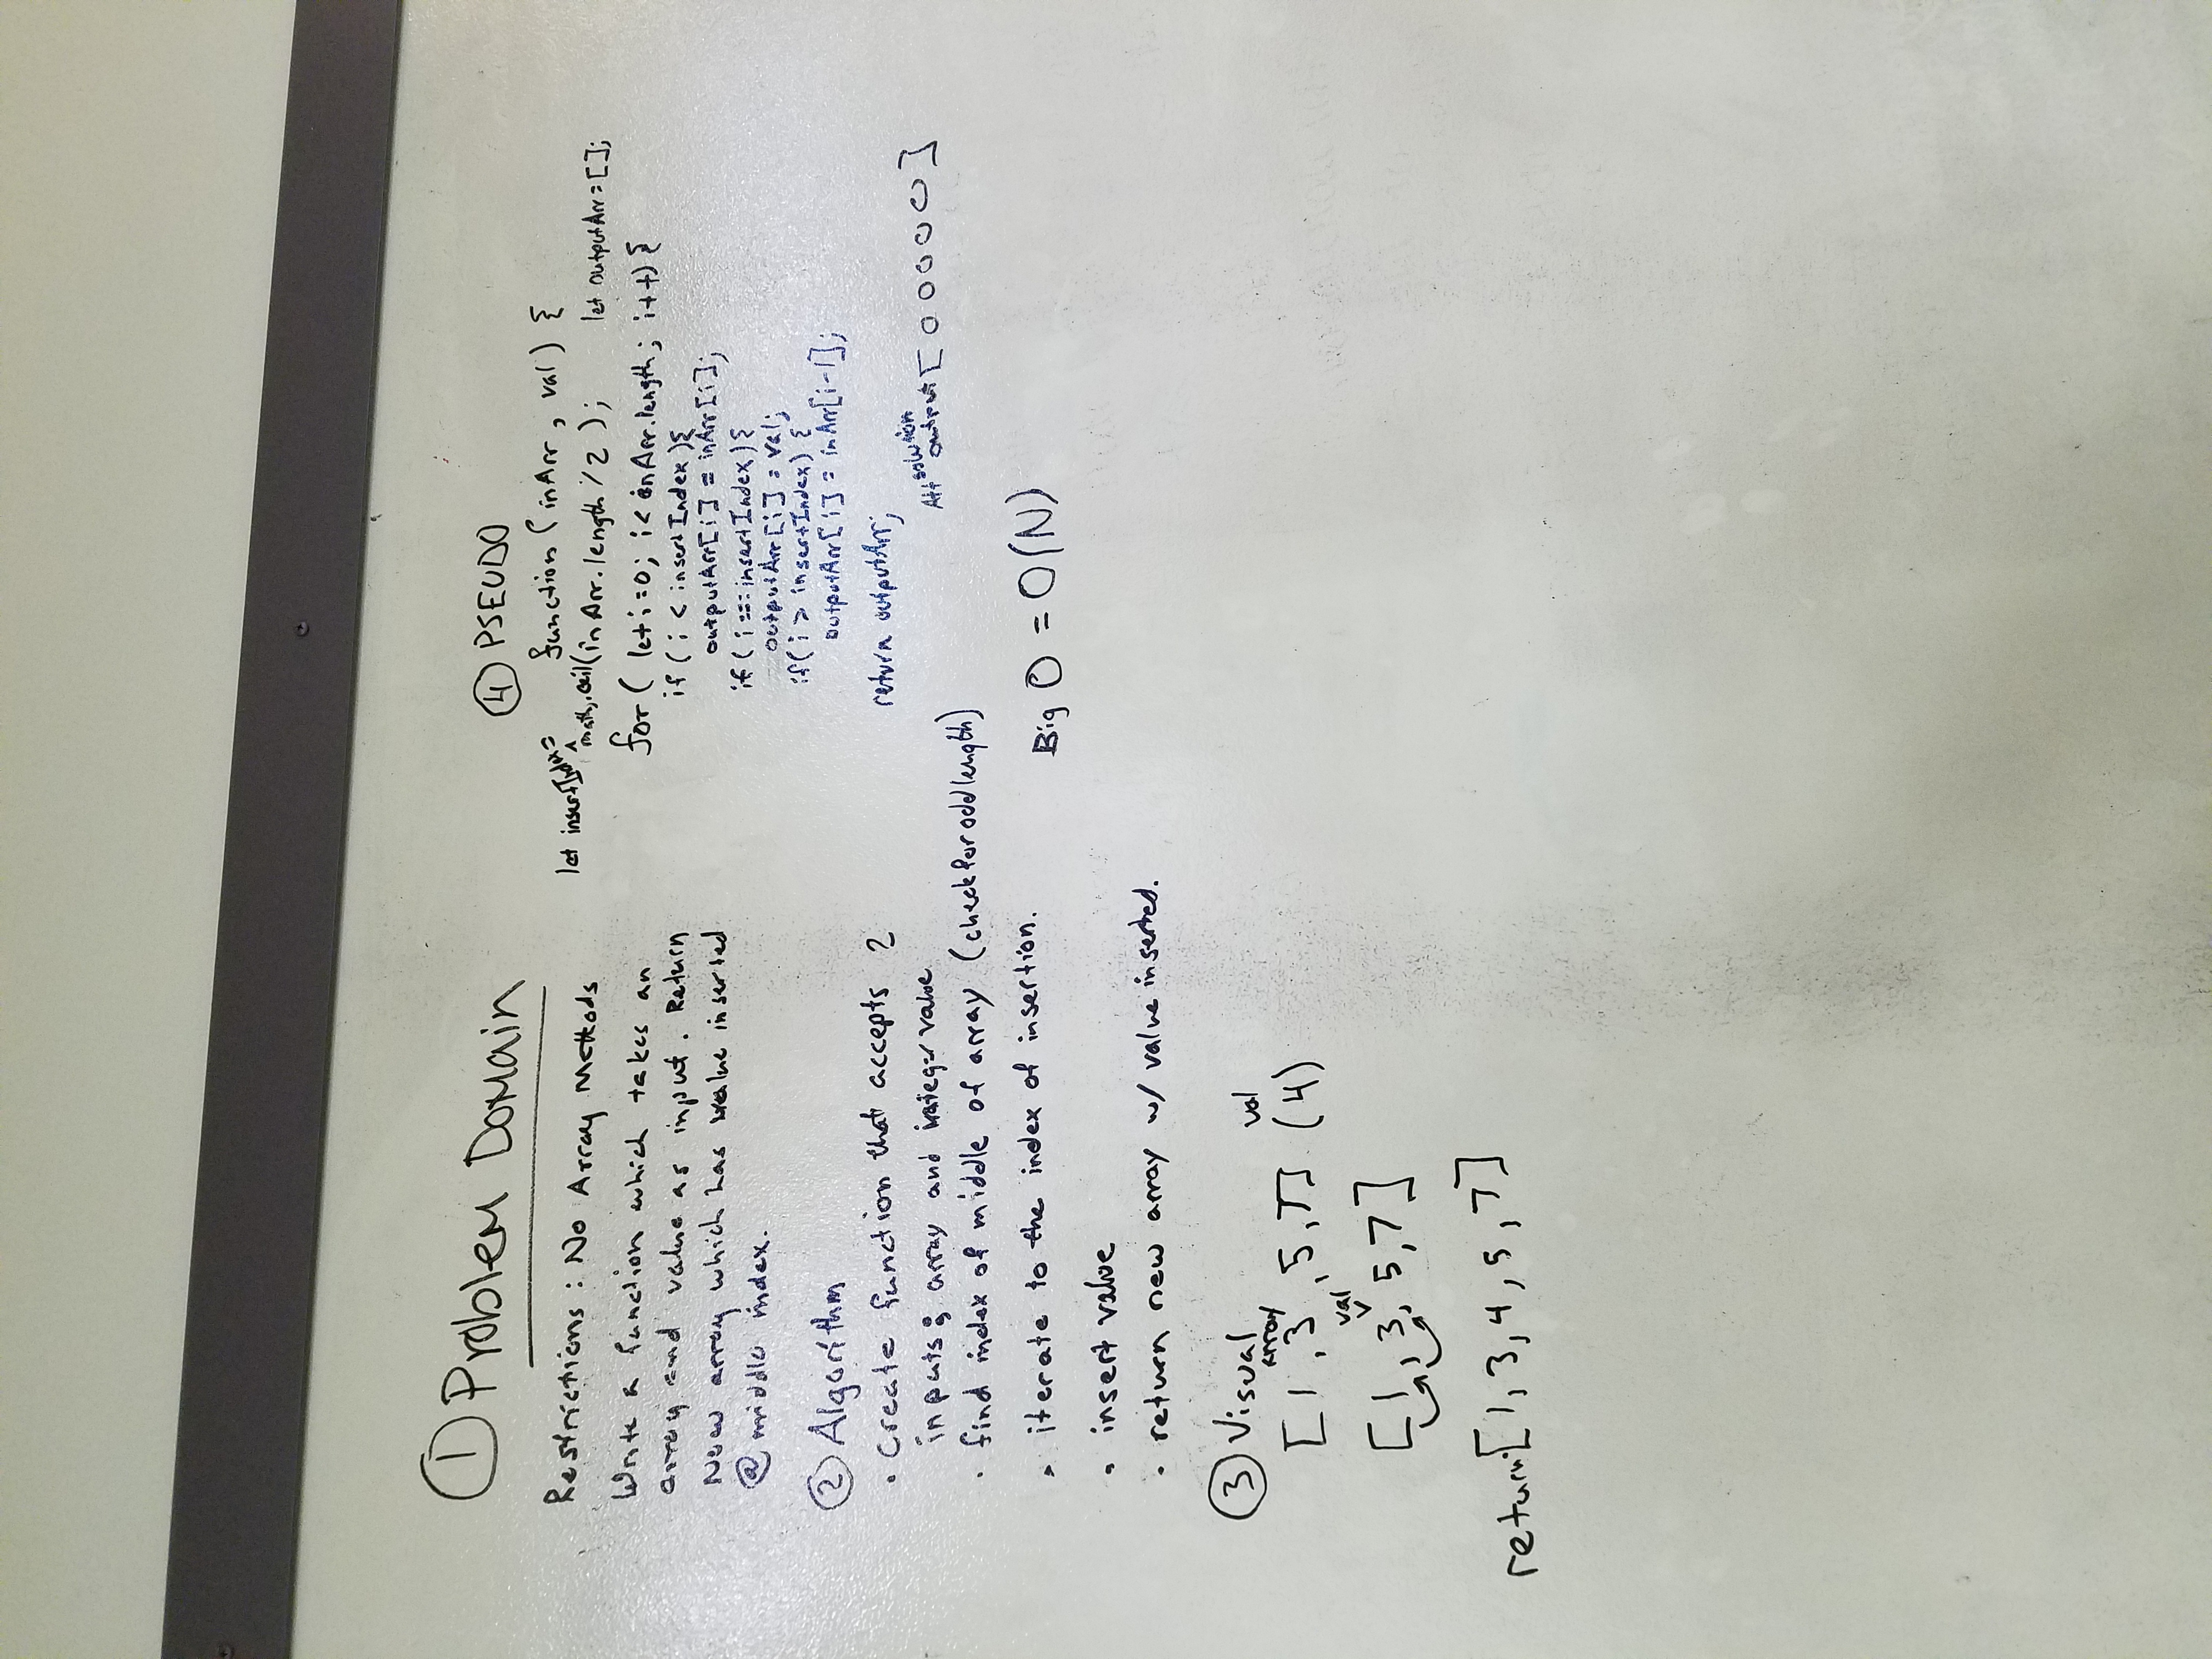 ① Problem Domain
Restrictions: No Array Methods
Write a function which takes an
array and value as input. Return
New array which has value inserted
@ middle index.
② Algorithm
• Create function that accepts 2
inputs; array and integer value
• find index of middle of array (check for odd length)
• iterate to the index of insertion.
• insert value
• return new array w/ value inserted.
③ Visual
array val
[1, 3, 5, 7] (4)
val
[1, 3, 5, 7]
return: [1, 3, 4, 5, 7]
④ PSEUDO
function (inArr, val) {
let insertIndex = math.ceil(inArr.length / 2); let outputArr = [];
for (let i=0; i< inArr.length; i++) {
if (i < insertIndex){
outputArr[i] = inArr[i];
if (i === insertIndex){
outputArr[i] = val;
if (i > insertIndex) {
outputArr[i] = inArr[i-1];
return outputArr;
solution
output [0 0 0 0 0]
Big O = O(N)